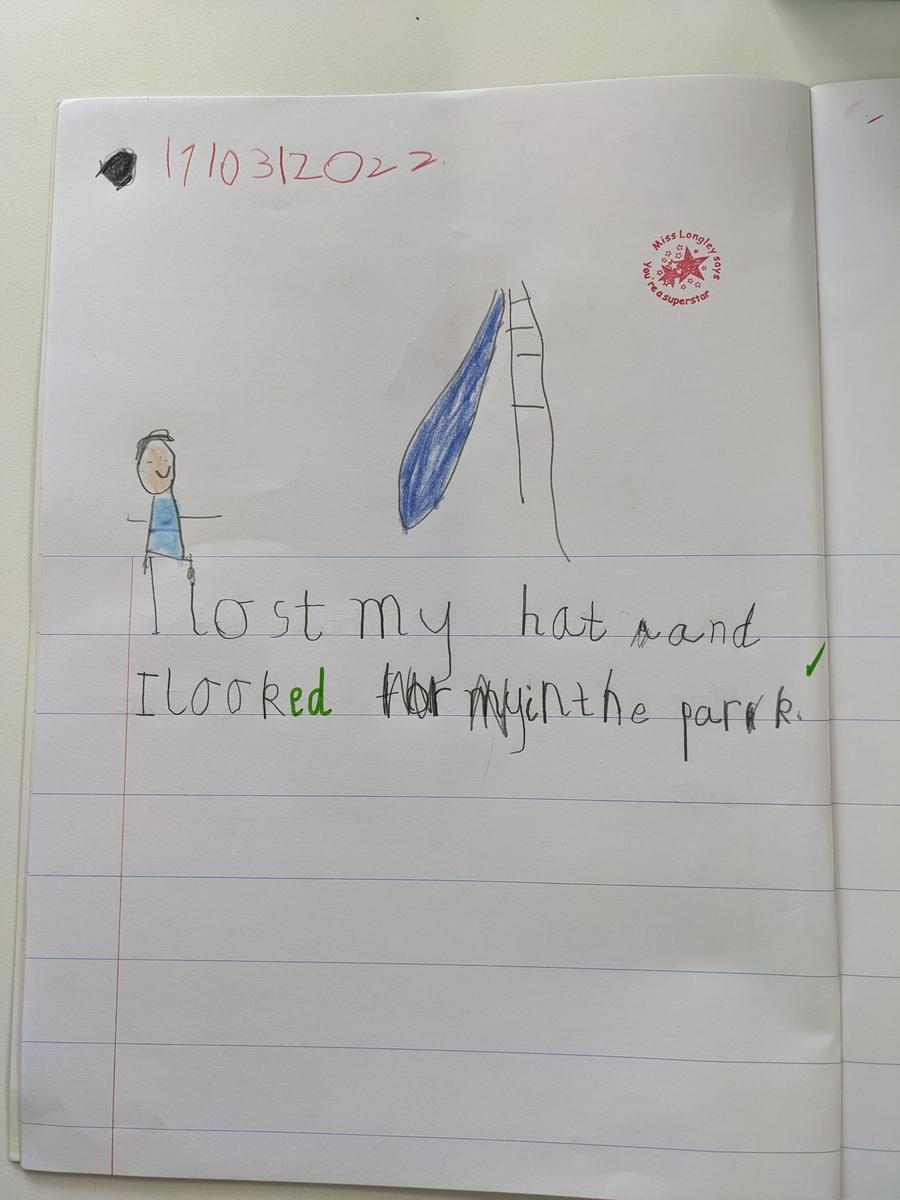 17/03/2022
Miss Longley says
You're a superstar
I lost my hat and
I looked in the park.